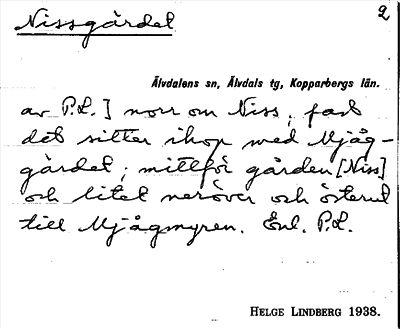 Nissgärdet 2
Älvdalens sn, Älvdals tg, Kopparbergs län.
av P.L.] norr om Niss, fast
det sitter ihop med Mjåg-
gärdet; mittför gården [Niss]
och litet neröver och österut
till Mjågmyren. Enl. P.L.
HELGE LINDBERG 1938.